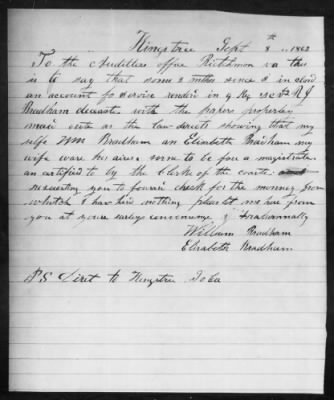 Kingstree Sept 8th 1862
To the Audillers offue Ritchmon va this
is to say that some 2 mths sence I in closd
an account for Service rendir in Reg S C R J
Bradham deceast with the papers properley
maid oute as the law directs showing that my
self Wm Bradham an Elizabeth Bradham my
wife ware his aires sorne to be fore a magistrate
an certified to by the Clerk of the coarte
requesting you to fourin check for the money from
which I have hird nothing pleas let me here from
you at youre earleys convenance
William Bradham
Elizabeth Bradham
P.S Diret to Kingstree So Ca